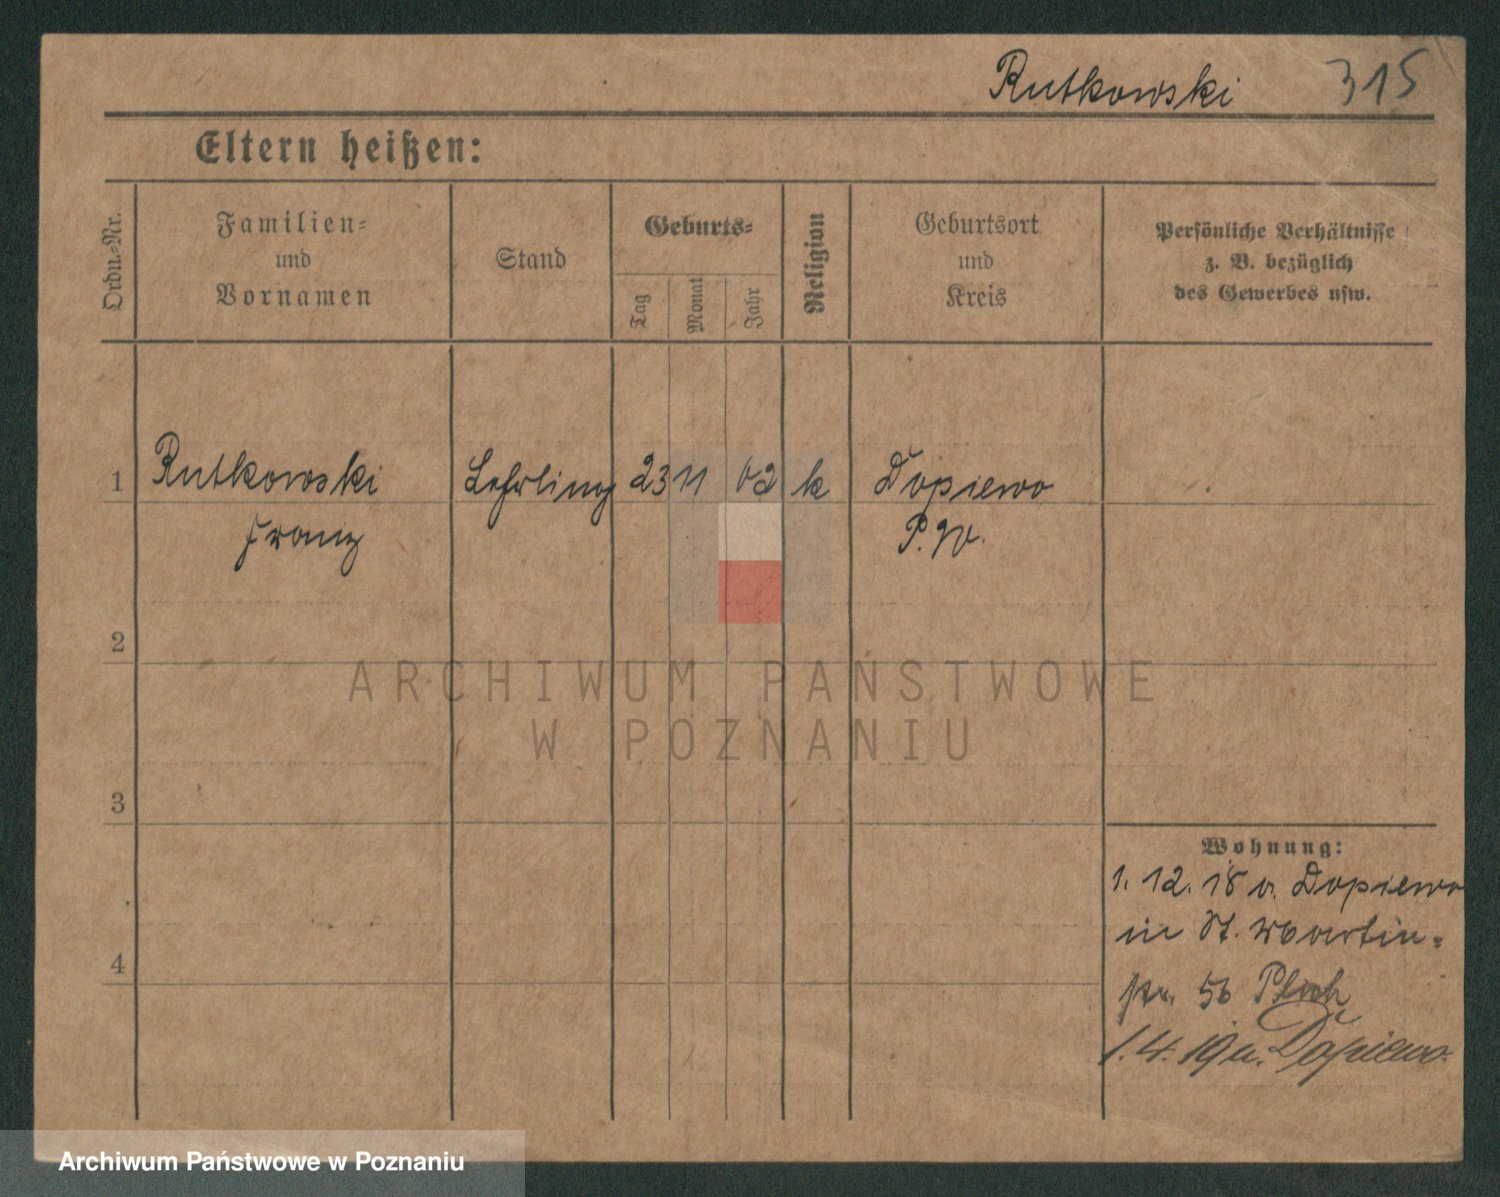 Rutkowski 315
Eltern heißen:
Ordn.-Nr.
Familien-
und
Vornamen
Stand
Geburts-
Tag
Monat
Jahr
Religion
Geburtsort
und
Kreis
Persönliche Verhältnisse
z. B. bezüglich
des Gewerbes usw.
1 Rutkowski Lehrling 23 11 02 k Dopiewo
Franz P.W.
2
3
4
Wohnung:
1. 12. 18 v. Dopiewo
in St. Martin-
str. 56
1. 4. 19 n. Dopiewo.
ARCHIWUM PAŃSTWOWE
W POZNANIU
Archiwum Państwowe w Poznaniu